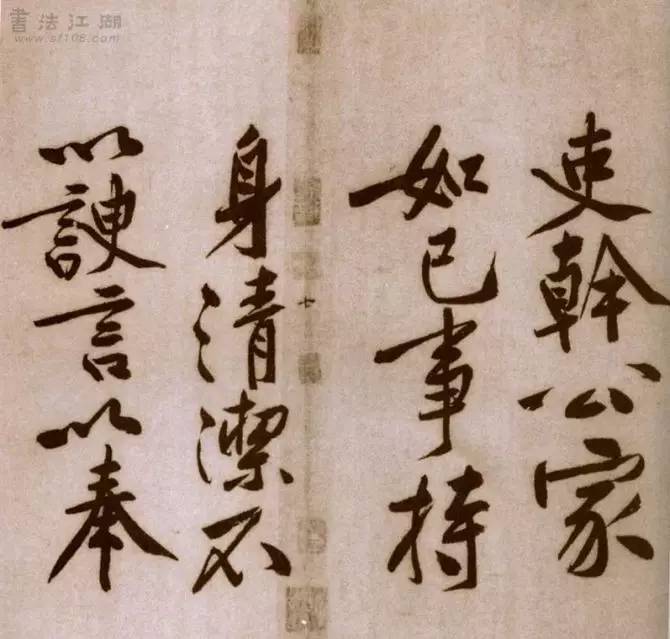 吏幹公家
如己事持
身清潔不
以諛言以奉
書法江湖
www.sf108.com